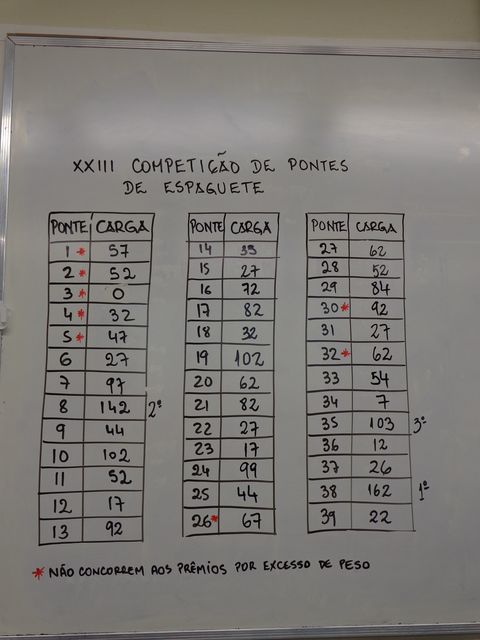 XXIII COMPETIÇÃO DE PONTES
DE ESPAGUETE
PONTE CARGA
1 * 57
2 * 52
3 * 0
4 * 32
5 * 47
6 27
7 97
8 142 2º
9 44
10 102
11 52
12 17
13 92
PONTE CARGA
14 39
15 27
16 72
17 82
18 32
19 102
20 62
21 82
22 27
23 17
24 99
25 44
26 * 67
PONTE CARGA
27 62
28 52
29 84
30 * 92
31 27
32 * 62
33 54
34 7
35 103 3º
36 12
37 26
38 162 1º
39 22
* NÃO CONCORREM AOS PRÊMIOS POR EXCESSO DE PESO